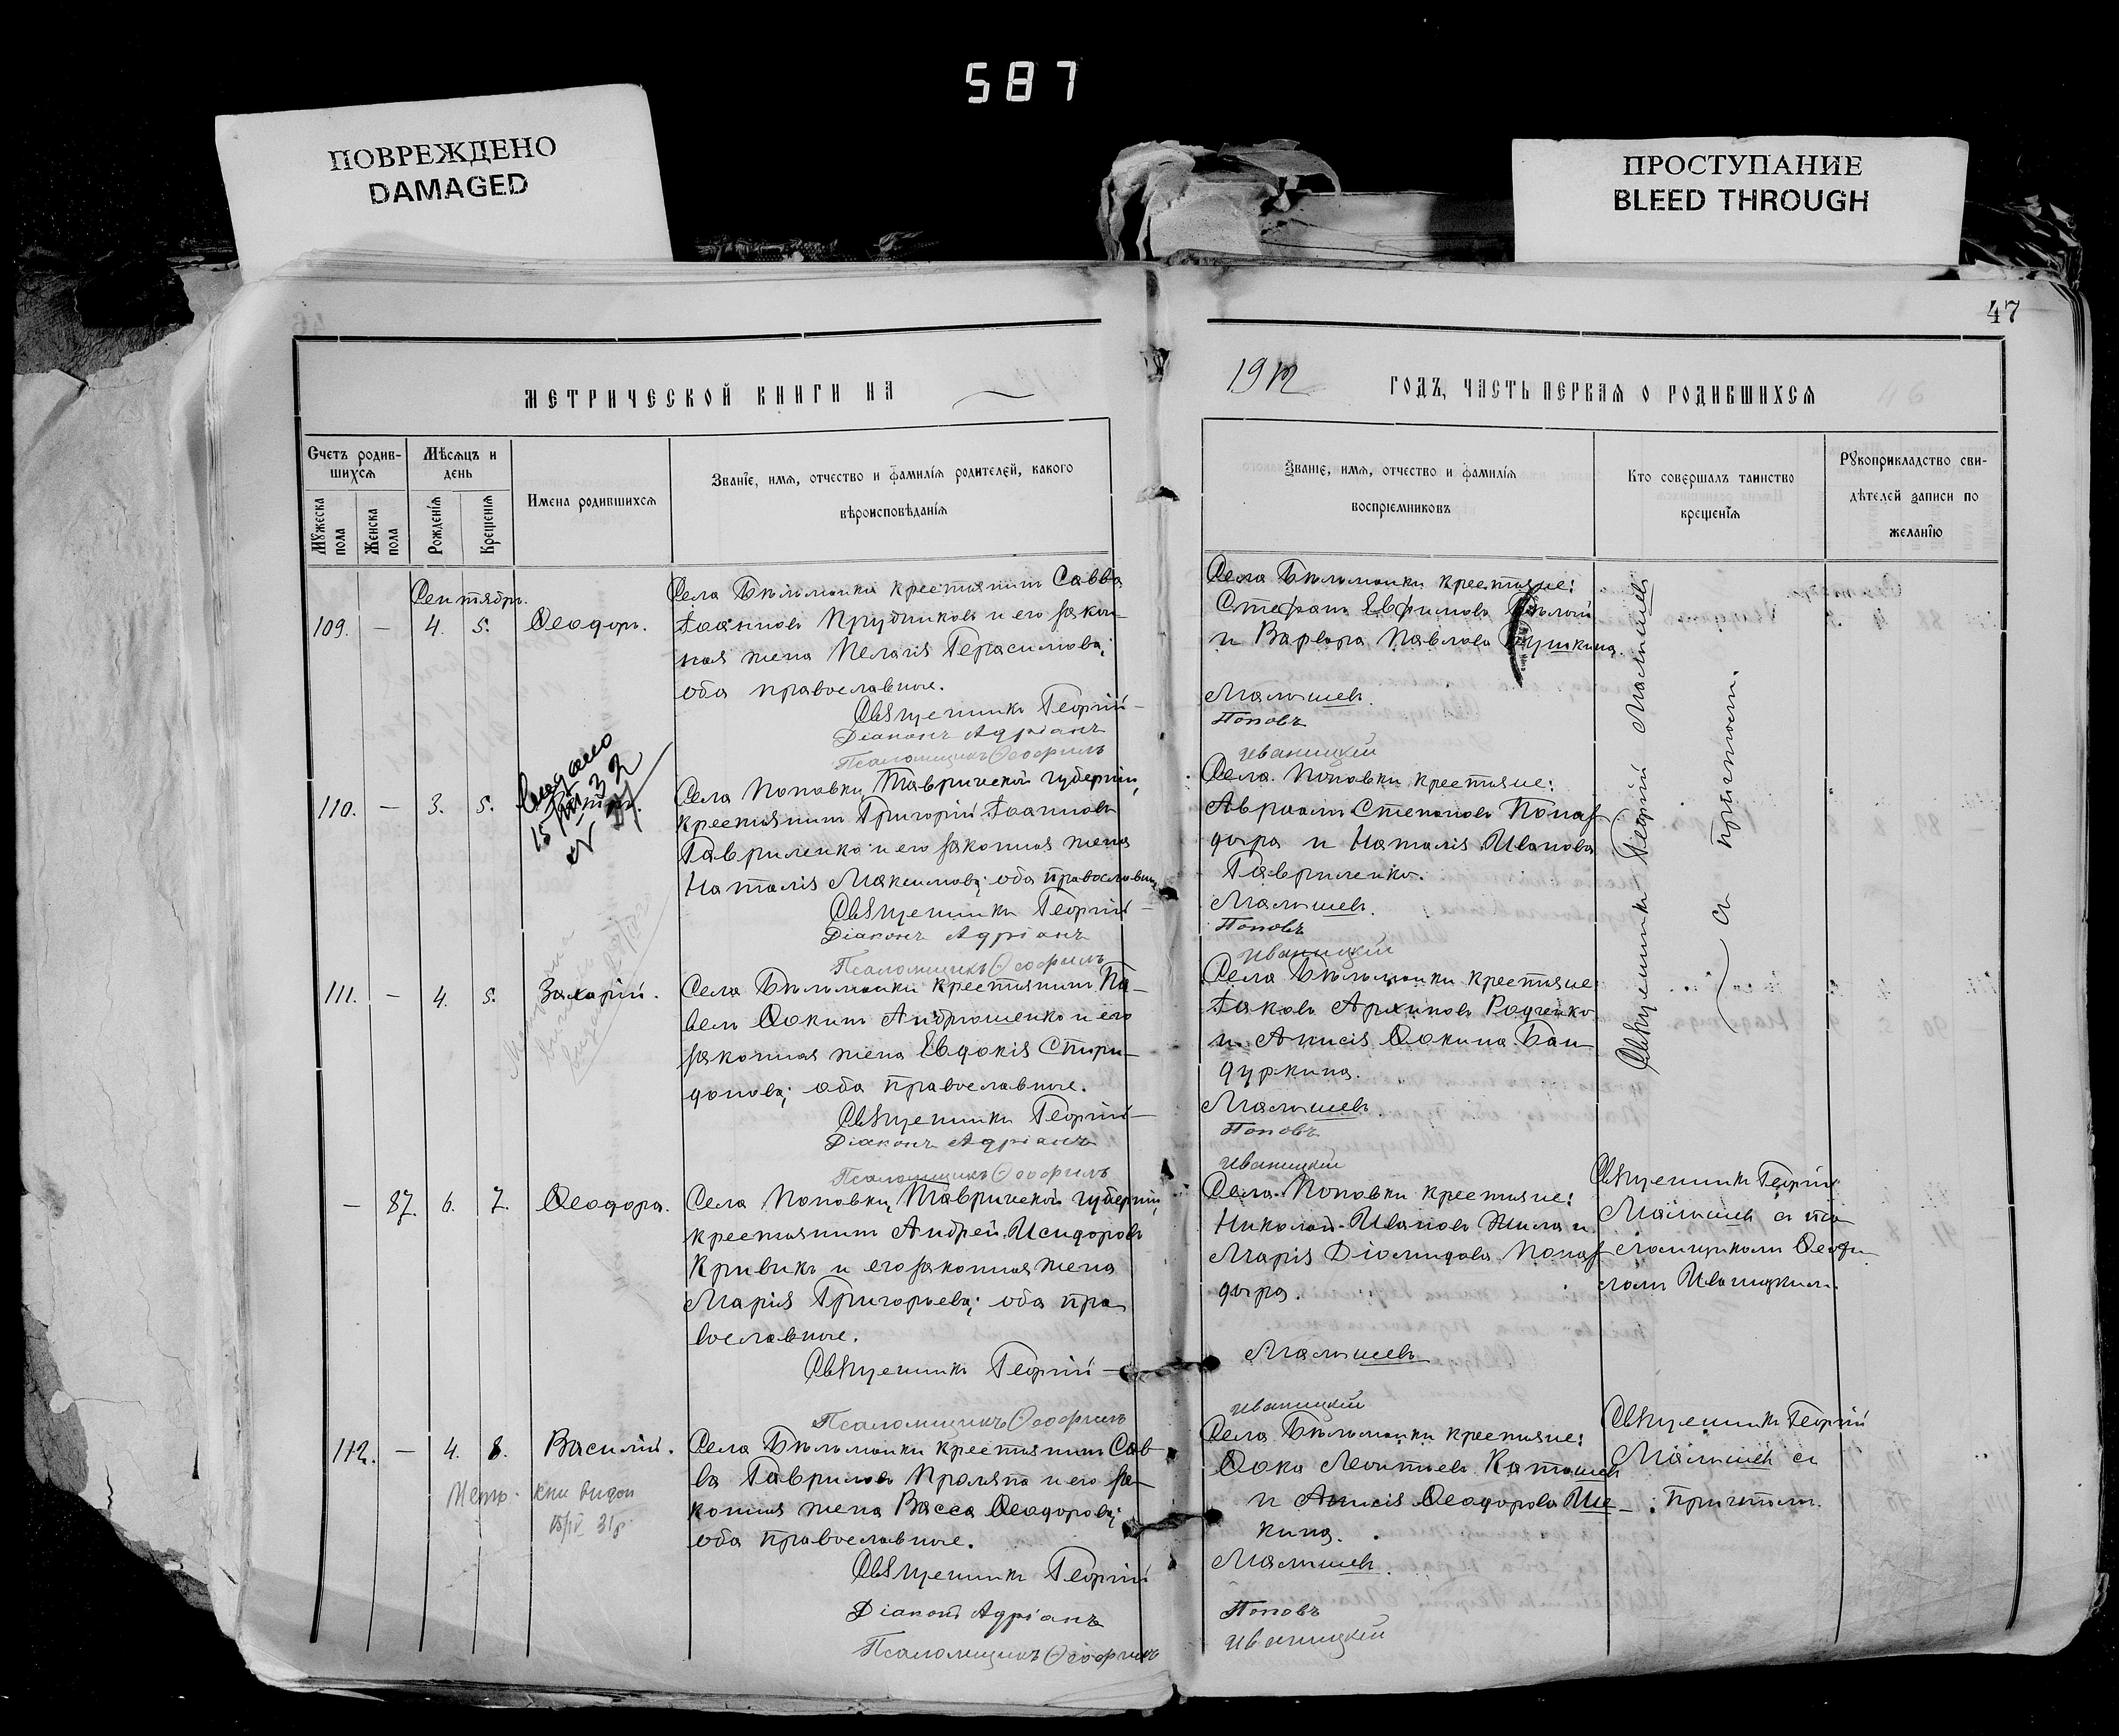 587
ПОВРЕЖДЕНО
DAMAGED
ПРОСТУПАНИЕ
BLEED THROUGH
47
МЕТРИЧЕСКОЙ КНИГИ НА
1912 ГОДЪ, ЧАСТЬ ПЕРВАЯ О РОДИВШИХСЯ
Счетъ родив-
шихся
Мѣсяцъ и
день
Мужеска
пола
Женска
пола
Рожденія
Крещенія
Имена родившихся
Званіе, имя, отчество и фамилія родителей, какого
вѣроисповѣданія
Званіе, имя, отчество и фамилія
воспріемниковъ
Кто совершалъ таинство
крещенія
Рукоприкладство сви-
дѣтелей записи по
желанію
Сентябрь.
109. — 4. 5. Ѳеодоръ.
Села Бѣльманки крестьянинъ Савва
Іоанновъ Прудниковъ и его закон-
ная жена Пелагія Герасимова;
оба православные.
Священникъ Георгій —
Діаконъ Адріанъ
Псаломщикъ Ѳеофилъ
Села Бѣльманки крестьяне:
Стефанъ Евфимовъ Бѣлый
и Варвара Павлова Пушкина.
Малышевъ.
Поповъ
Иваницкій
Священникъ Георгій Малышевъ
съ причтомъ.
110. — 3. 5.
Выдано
Села Поповки, Таврической губерніи,
крестьянинъ Григорій Іоанновъ
Гавриленко и его законная жена
Наталія Максимова; оба православные
Священникъ Георгій —
Діаконъ Адріанъ
Псаломщикъ Ѳеофилъ
Села Поповки крестьяне:
Авраамъ Степановъ Попаз-
дыра и Наталія Иванова
Гавриленко.
Малышевъ.
Поповъ
Иваницкій
111. — 4. 5. Захарій.
Села Бѣльманки крестьянинъ Па-
велъ Ѳокинъ Андрюшенко и его
законная жена Евдокія Спири-
донова; оба православные.
Священникъ Георгій —
Діаконъ Адріанъ
Псаломщикъ Ѳеофилъ
Села Бѣльманки крестьяне:
Іаковъ Архиповъ Радченко
и Анисія Ѳокина Бан-
дуркина.
Малышевъ.
Поповъ
Иваницкій
— 87. 6. 7. Ѳеодора.
Села Поповки, Таврической губерніи,
крестьянинъ Андрей Исидоровъ
Кривикъ и его законная жена
Марія Григорьева; оба пра-
вославные.
Священникъ Георгій —
Псаломщикъ Ѳеофилъ
Села Поповки крестьяне:
Николай Ивановъ Жила и
Марія Діомидова Попаз-
дыра.
Малышевъ
Иваницкій
Священникъ Георгій
Малышевъ съ пса-
ломщикомъ Ѳеофи-
ломъ Иваницкимъ.
112. — 4. 8. Василій.
Метр. кни выдан
31 г.
Села Бѣльманки крестьянинъ Сав-
ва Гавриловъ Проляпа и его за-
конная жена Васса Ѳеодорова;
оба православные.
Священникъ Георгій
Діаконъ Адріанъ
Псаломщикъ Ѳеофилъ
Села Бѣльманки крестьяне:
Ѳока Леонтіевъ Каташевъ
и Анисія Ѳеодорова Ще-
кина.
Малышевъ.
Поповъ
Иваницкій
Священникъ Георгій
Малышевъ съ
причтомъ.